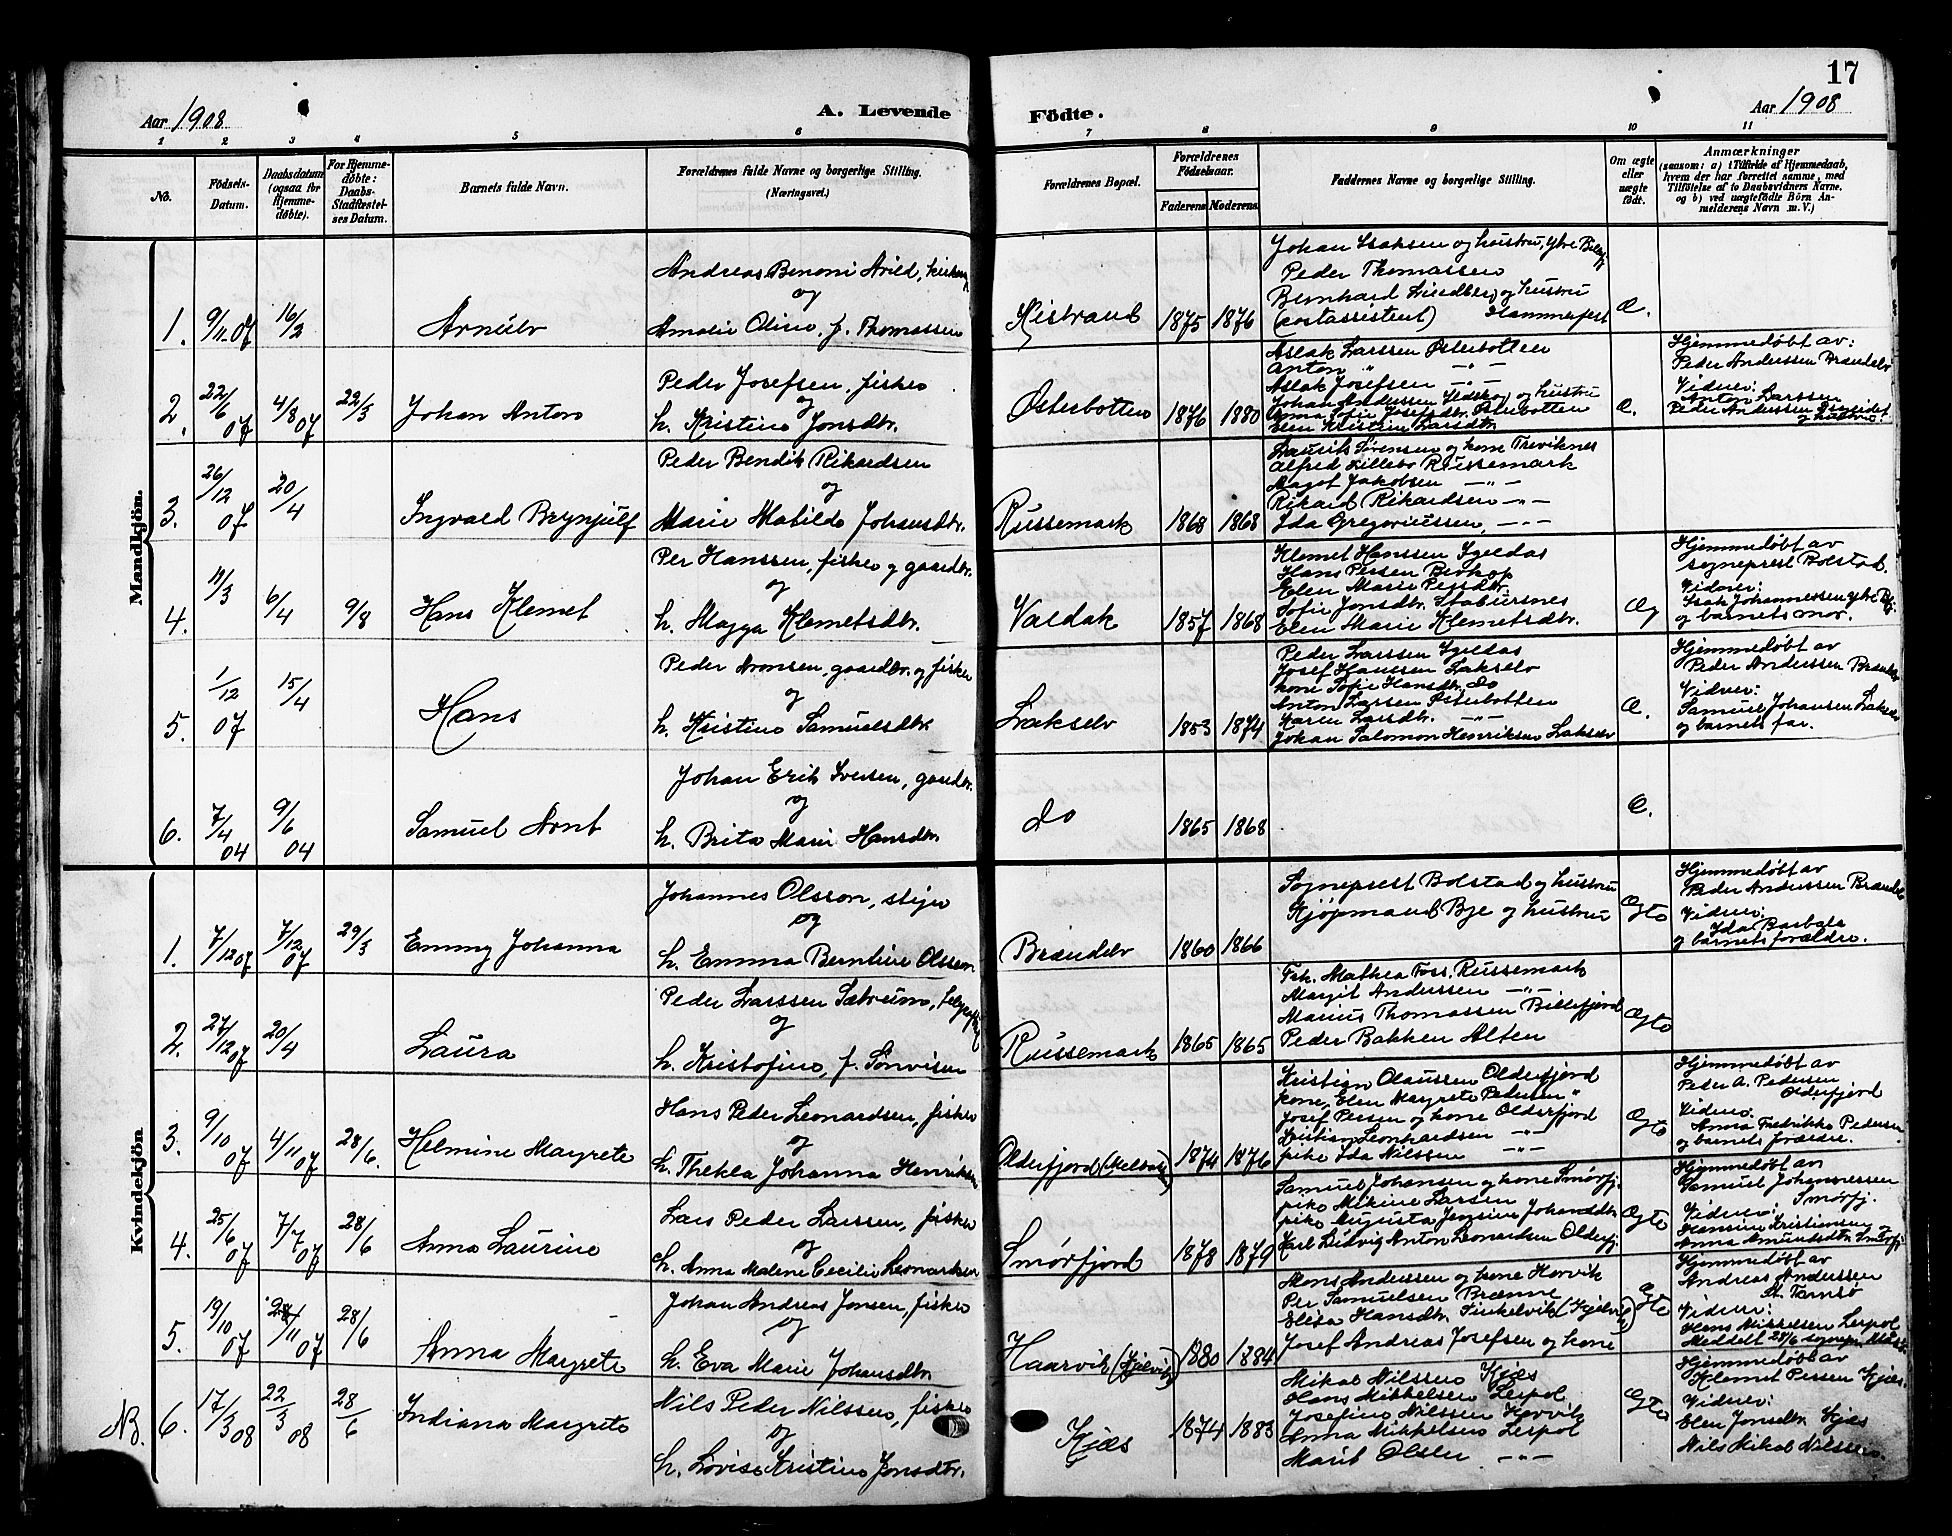 17
Aar 1908
A. Levende
Fødte.
Aar 1908
1 2 3 4 5 6 7 8 9 10 11
No.
Fødsels-Datum.
Daabsdatum (ogsaa for Hjemmedøbte).
For Hjemmedøbte: Daabs-Stadfæstelses Datum.
Barnets fulde Navn.
Forældrenes fulde Navne og borgerlige Stilling. (Næringsvei.)
Forældrenes Bopæl.
Forældrenes Fødselsaar.
Faderens Moderens
Faddernes Navne og borgerlige Stilling.
Om ægte eller uægte født.
Anmærkninger
(saasom: a) i Tilfælde af Hjemmedaab, hvem der har forrettet samme, med Tilføielse af to Daabsvidners Navne. og b) ved uægtefødte Børn Anmelderens Navn m.V.)
Mandkjön.
1. 9/11-07 16/2
Andreas Benoni Arild,
og
Amalie Oline, f. Thomassen
Kistrand 1875 1876
Johan Isaksen og hustru,
Peder Thomassen
Bernhard Lindberg og hustru
(postassistent) Hammerfest
Æ.
2. 22/6 07 4/8 07 22/3 Johan Anton
Peder Josefsen, fisker
og
h. Kristine Jonsdtr.
Østerbotten 1876 1880
Aslak Larssen Østerbotten
Anton " —"—
Aslak Josefsen —"—
Johan Andersen og hustru
Anna Sofie Josefsdtr. Østerbotten
Elen Kristine Larsdtr.
Æ.
Hjemmedøbt av:
Peder Anderssen Brændelv
Vidner:
Anton Larssen
Peder Anderssen
og hustru.
3. 26/12 07 20/4 Ingvald Brynjulf
Peder Bendik Rikardsen
og
Marie Matilde Johansdtr.
Russemark 1868 1868
Laurits Sørensen og kone Treviknes
Alfred Lillebo Russemark
Magot Jakobsen —"—
Rikard Rikardsen —"—
Ida Gregoriussen —"—
4. 11/3 6/4 9/8 Hans Klemet
Per Hanssen, fisker og gaardbr.
og
h. Magga Klemetsdtr.
Valdak 1857 1868
Klemet Hanssen Igeldas
Hans Persen Berkop
Elen Marie Persdtr.
Sofie Jonsdtr. Stabursnes
Elen Marie Klemetsdtr.
Æg
Hjemmedøbt av
sogneprest Bolstad.
Vidner:
Isak Johannessen
og barnets mor.
5. 1/12 07 15/4 Hans
Peder Aronsen, gaardbr. og fisker
og
h. Kristine Samuelsdtr.
Lakselv 1853 1874
Peder Larssen Igeldas
Josef Hanssen Lakselv
kone Sofie Hansdtr. do
Anton Larsen Østerbotten
Karen Larsdtr. —"—
Johan Salomon Henriksen Lakselv
Æ.
Hjemmedøbt av
Peder Anderssen Brændelv
Vidner:
Samuel Johansen Lakselv
og barnets far.
6. 7/4 04 9/6 04 Samuel Arnt
Johan Erik Iversen, gaardbr.
og
h. Brita Marie Hansdtr.
do 1865 1868
Æ.
Kvindekjön
1. 7/12 07 7/12 07 29/3 Emmy Johanna
Johannes Olsson, stiger
og
h. Emma Berntine Olsson
Brændelv 1860 1866
Sogneprest Bolstad og hustru
Kjøpmand Bye og hustru
Ægte
Hjemmedøbt av
Peder Anderssen Brændelv
Vidner:
Ida Barbala
og barnets forældre.
2. 27/12 07 20/4 Laura
Peder Larssen Sætrum,
og
h. Kristofine, f. Sønvisen
Russemark 1865 1865
Frk. Mathea Foss, Russemark
Margit Anderssen —"—
Marius Thomassen Billefjord
Peder Bakken Alten
Ægte
3. 9/10 07 4/11 07 28/6. Helmine Margrete
Hans Peder Leonardsen, fisker
og
h. Thekla Johanna Henriksen
Olderfjord 1874 1876
Kristian Olaussen Olderfjord
kone, Elen Margrete Pedersen "
Josef Persen og kone Olderfjord
Kristian Leonhardsen —"—
pike Ida Nilssen —"—
Ægte
Hjemmedøbt av
Peder A. Pedersen
Olderfjord
Vidner:
Anna Fredrikke Pedersen
og barnets forældre.
4. 25/6 07 7/7 07 28/6 Anna Laurine
Lars Peder Larssen, fisker
og
h. Anna Malene Cecilie Leonardsen
Smørfjord 1878 1879
Samuel Johansen og kone Smørfj.
pike Mikine Larsen
pike Augusta Jensine Johansdtr.
Karl Ludvig Anton Leonardsen Olderfj.
Ægte
Hjemmedøbt av
Samuel Johannessen
Smørfj.
Vidner:
Hansine Kristiansen og
Anna Amundsdtr. Smørfj.
5. 19/10 07 28/11 07 28/6 Anna Margrete
Johan Andreas Jonsen, fisker
og
h. Eva Marie Johansdtr.
Haarvik (Kjelvik) 1880 1884
Mons Anderssen og kone Horvik
Per Samuelsen Brænne
Elisa Hansdtr. (Kjelvik)
Josef Andreas Josefsen og kone
Ægte
Hjemmedøbt av
Andreas Anderssen
St. Tamsø
Vidner:
Hans Mikkelsen Lerpol
Meddelt 28/6 sognepr.
NB. 6. 17/3 08 22/3 08 28/6 Indiana Margrete
Nils Peder Nilssen, fisker
og
h. Lovise Kristine Jonsdtr.
Kjæs 1874 1883
Mikal Nilssen Kjæs
Hans Mikkelsen Lerpol
Josefine Nilssen Horvik
Anna Mikkelsen Lerpol
Marit Olsen —"—
Ægte
Hjemmedøbt av
Klemet Persen Kjæs.
Vidner:
Elen Jonsdtr. Kjæs
Nils Mikal Nilssen.